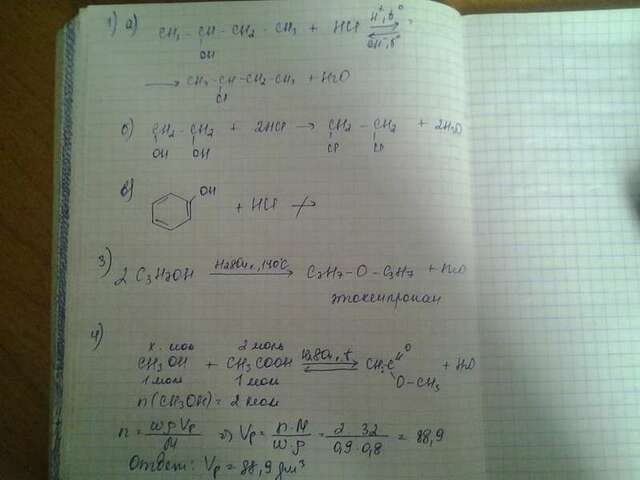 1) а) CH₃ - CH - CH₂ - CH₃ + HCl ⇌ H⁺, t° OH⁻, t°
OH
→ CH₃ - CH - CH₂ - CH₃ + H₂O
Cl
б) CH₂ - CH₂ + 2HCl → CH₂ - CH₂ + 2H₂O
OH OH Cl Cl
в) OH
+ HCl ↛
3) 2 C₃H₇OH H₂SO₄, 140°C → C₃H₇ - O - C₃H₇ + H₂O
4) x моль 2 моль
CH₃OH + CH₃COOH H₂SO₄, t ⇌ CH₃C O + H₂O
O - CH₃
1 моль 1 моль
n(CH₃OH) = 2 моль
n = wρVp / M ⇒ Vp = n·M / w·ρ = 2·32 / 0,9·0,8 = 88,9
Ответ: Vp = 88,9 дм³